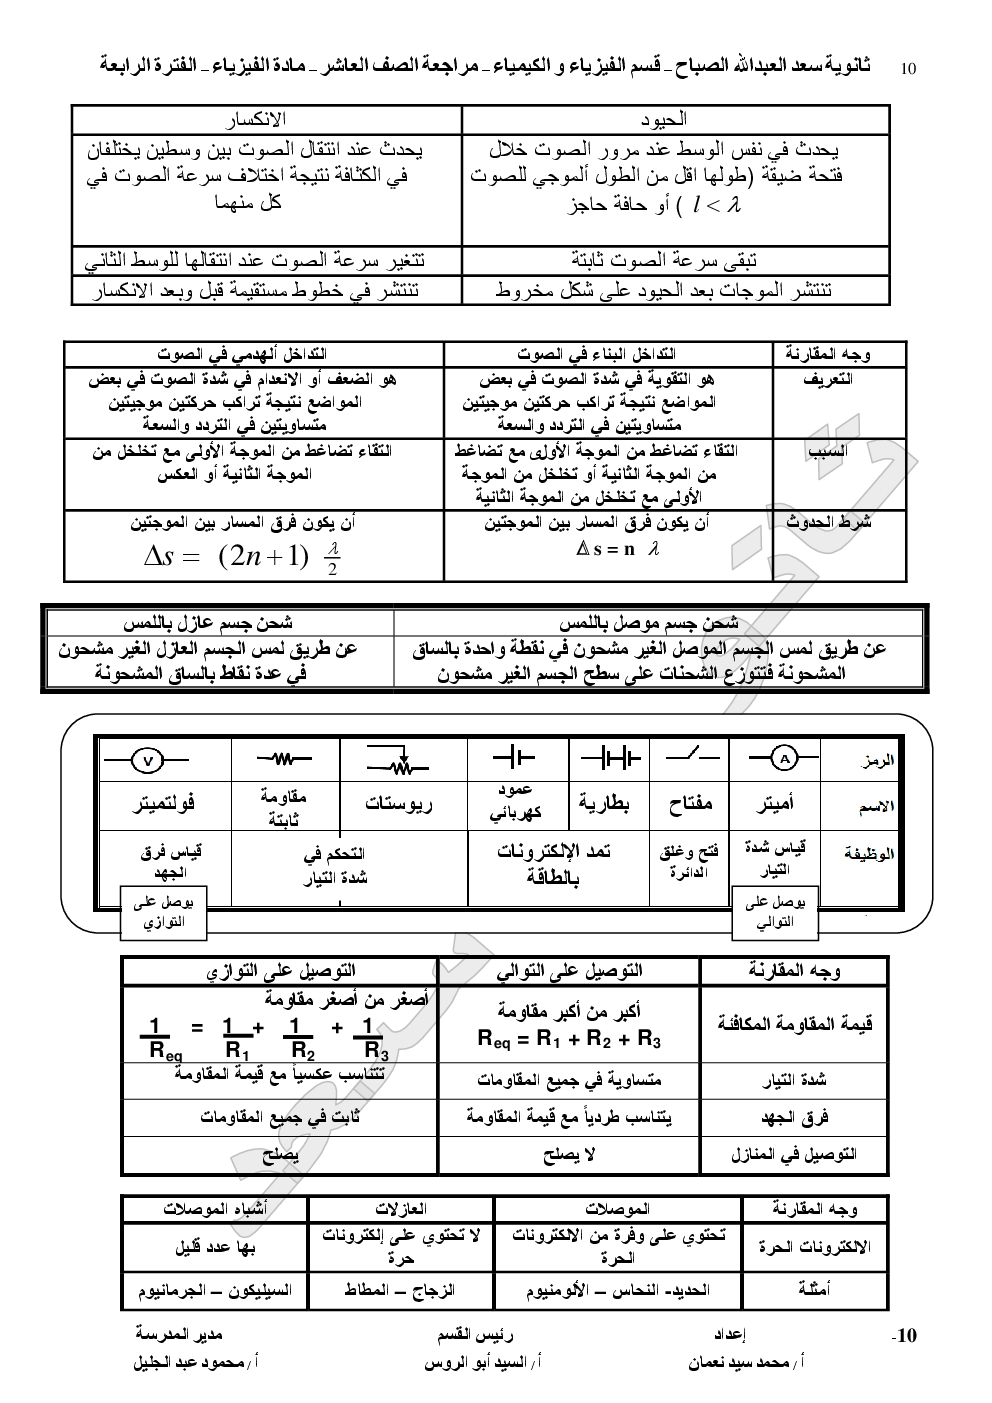 ثانوية سعد العبدالله الصباح – قسم الفيزياء و الكيمياء – مراجعة الصف العاشر – مادة الفيزياء – الفترة الرابعة 10
الحيود
الانكسار
يحدث في نفس الوسط عند مرور الصوت خلال
فتحة ضيقة (طولها اقل من الطول ألموجي للصوت
l < λ ) أو حافة حاجز
يحدث عند انتقال الصوت بين وسطين يختلفان
في الكثافة نتيجة اختلاف سرعة الصوت في
كل منهما
تبقى سرعة الصوت ثابتة
تتغير سرعة الصوت عند انتقالها للوسط الثاني
تنتشر الموجات بعد الحيود على شكل مخروط
تنتشر في خطوط مستقيمة قبل وبعد الانكسار
وجه المقارنة
التداخل البناء في الصوت
التداخل ألهدمي في الصوت
التعريف
هو التقوية في شدة الصوت في بعض
المواضع نتيجة تراكب حركتين موجيتين
متساويتين في التردد والسعة
هو الضعف أو الانعدام في شدة الصوت في بعض
المواضع نتيجة تراكب حركتين موجيتين
متساويتين في التردد والسعة
السبب
التقاء تضاغط من الموجة الأولى مع تضاغط
من الموجة الثانية أو تخلخل من الموجة
الأولى مع تخلخل من الموجة الثانية
التقاء تضاغط من الموجة الأولى مع تخلخل من
الموجة الثانية أو العكس
شرط الحدوث
أن يكون فرق المسار بين الموجتين
Δ s = n λ
أن يكون فرق المسار بين الموجتين
Δs = (2n + 1) λ/2
شحن جسم موصل باللمس
شحن جسم عازل باللمس
عن طريق لمس الجسم الموصل الغير مشحون في نقطة واحدة بالساق
المشحونة فتتوزع الشحنات على سطح الجسم الغير مشحون
عن طريق لمس الجسم العازل الغير مشحون
في عدة نقاط بالساق المشحونة
الرمز
A
V
الاسم
أميتر
مفتاح
بطارية
عمود
كهربائي
ريوستات
مقاومة
ثابتة
فولتميتر
الوظيفة
قياس شدة
التيار
فتح وغلق
الدائرة
تمد الإلكترونات
بالطاقة
التحكم في
شدة التيار
قياس فرق
الجهد
يوصل على
التوالي
يوصل على
التوازي
وجه المقارنة
التوصيل على التوالي
التوصيل على التوازي
قيمة المقاومة المكافئة
أكبر من أكبر مقاومة
Req = R1 + R2 + R3
أصغر من أصغر مقاومة
1 = 1 + 1 + 1
Req R1 R2 R3
شدة التيار
متساوية في جميع المقاومات
تتناسب عكسياً مع قيمة المقاومة
فرق الجهد
يتناسب طردياً مع قيمة المقاومة
ثابت في جميع المقاومات
التوصيل في المنازل
لا يصلح
يصلح
وجه المقارنة
الموصلات
العازلات
أشباه الموصلات
الالكترونات الحرة
تحتوي على وفرة من الالكترونات
الحرة
لا تحتوي على إلكترونات
حرة
بها عدد قليل
أمثلة
الحديد- النحاس – الألومنيوم
الزجاج – المطاط
السيليكون – الجرمانيوم
10-
إعداد
رئيس القسم
مدير المدرسة
أ / محمد سيد نعمان
أ / السيد أبو الروس
أ / محمود عبد الجليل